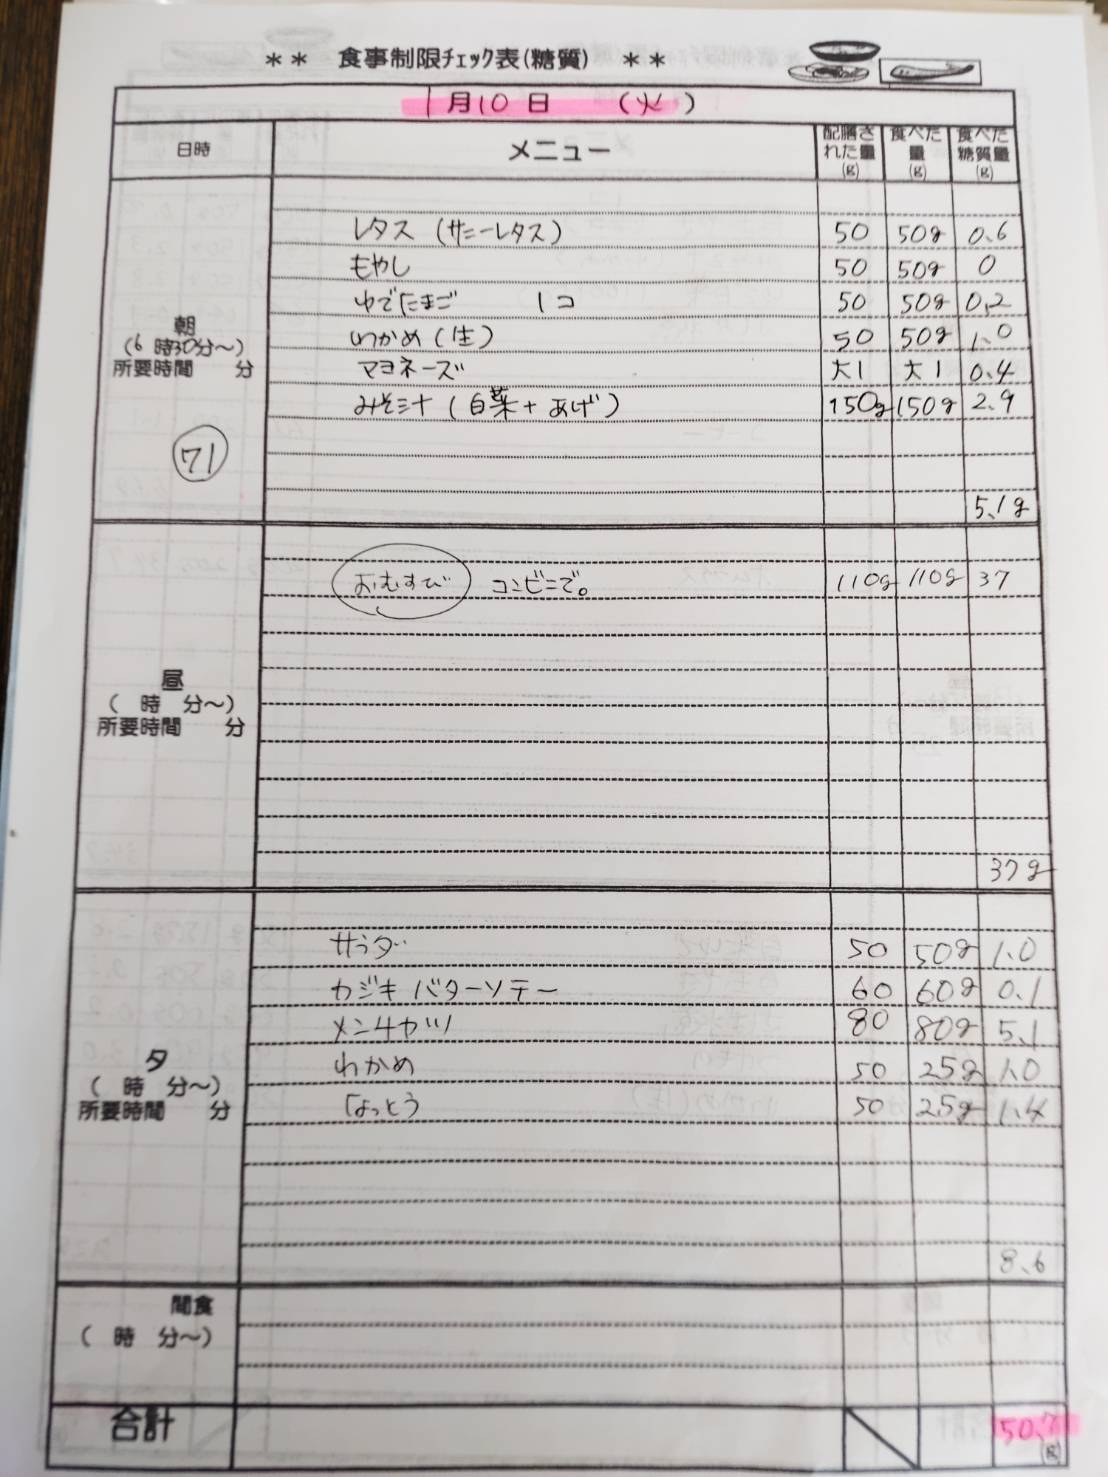 ＊＊ 食事制限ﾁｪｯｸ表(糖質) ＊＊
1月10日 (火)
日時 メニュー 配膳された量(g) 食べた量(g) 食べた糖質量(g)
朝
(6時30分～)
所要時間 分
71
レタス (サニーレタス) 50 50g 0.6
もやし 50 50g 0
ゆでたまご 1コ 50 50g 0.2
わかめ(生) 50 50g 1.0
マヨネーズ 大1 大1 0.4
みそ汁 (白菜+あげ) 150g 150g 2.9
5.1g
昼
( 時 分～)
所要時間 分
おむすび コンビニで。 110g 110g 37
37g
夕
( 時 分～)
所要時間 分
サラダ 50 50g 1.0
カジキバターソテー 60 60g 0.1
メンチカツ 80 80g 5.1
わかめ 50 25g 1.0
なっとう 50 25g 1.4
8.6
間食
( 時 分～)
合計 50.7
(g)